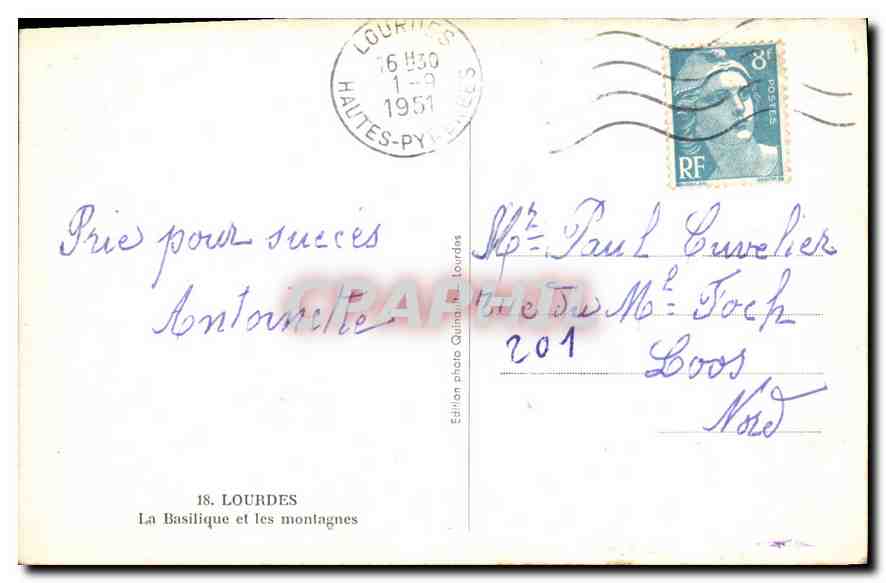 LOURDES
16 H30
1-9
1951
HAUTES-PYRENEES
8F
POSTES
RF
Prie pour succès
Antoinette
Mr Paul Cuvelier
rue du Ml Foch
201
Loos
Nord
Edition photo Quinault Lourdes
CPAPHIL
18. LOURDES
La Basilique et les montagnes